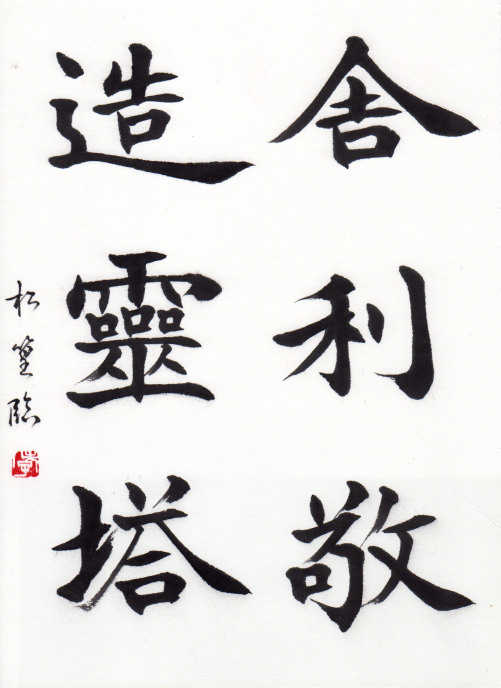 舍利敬
造靈塔
松篁臨